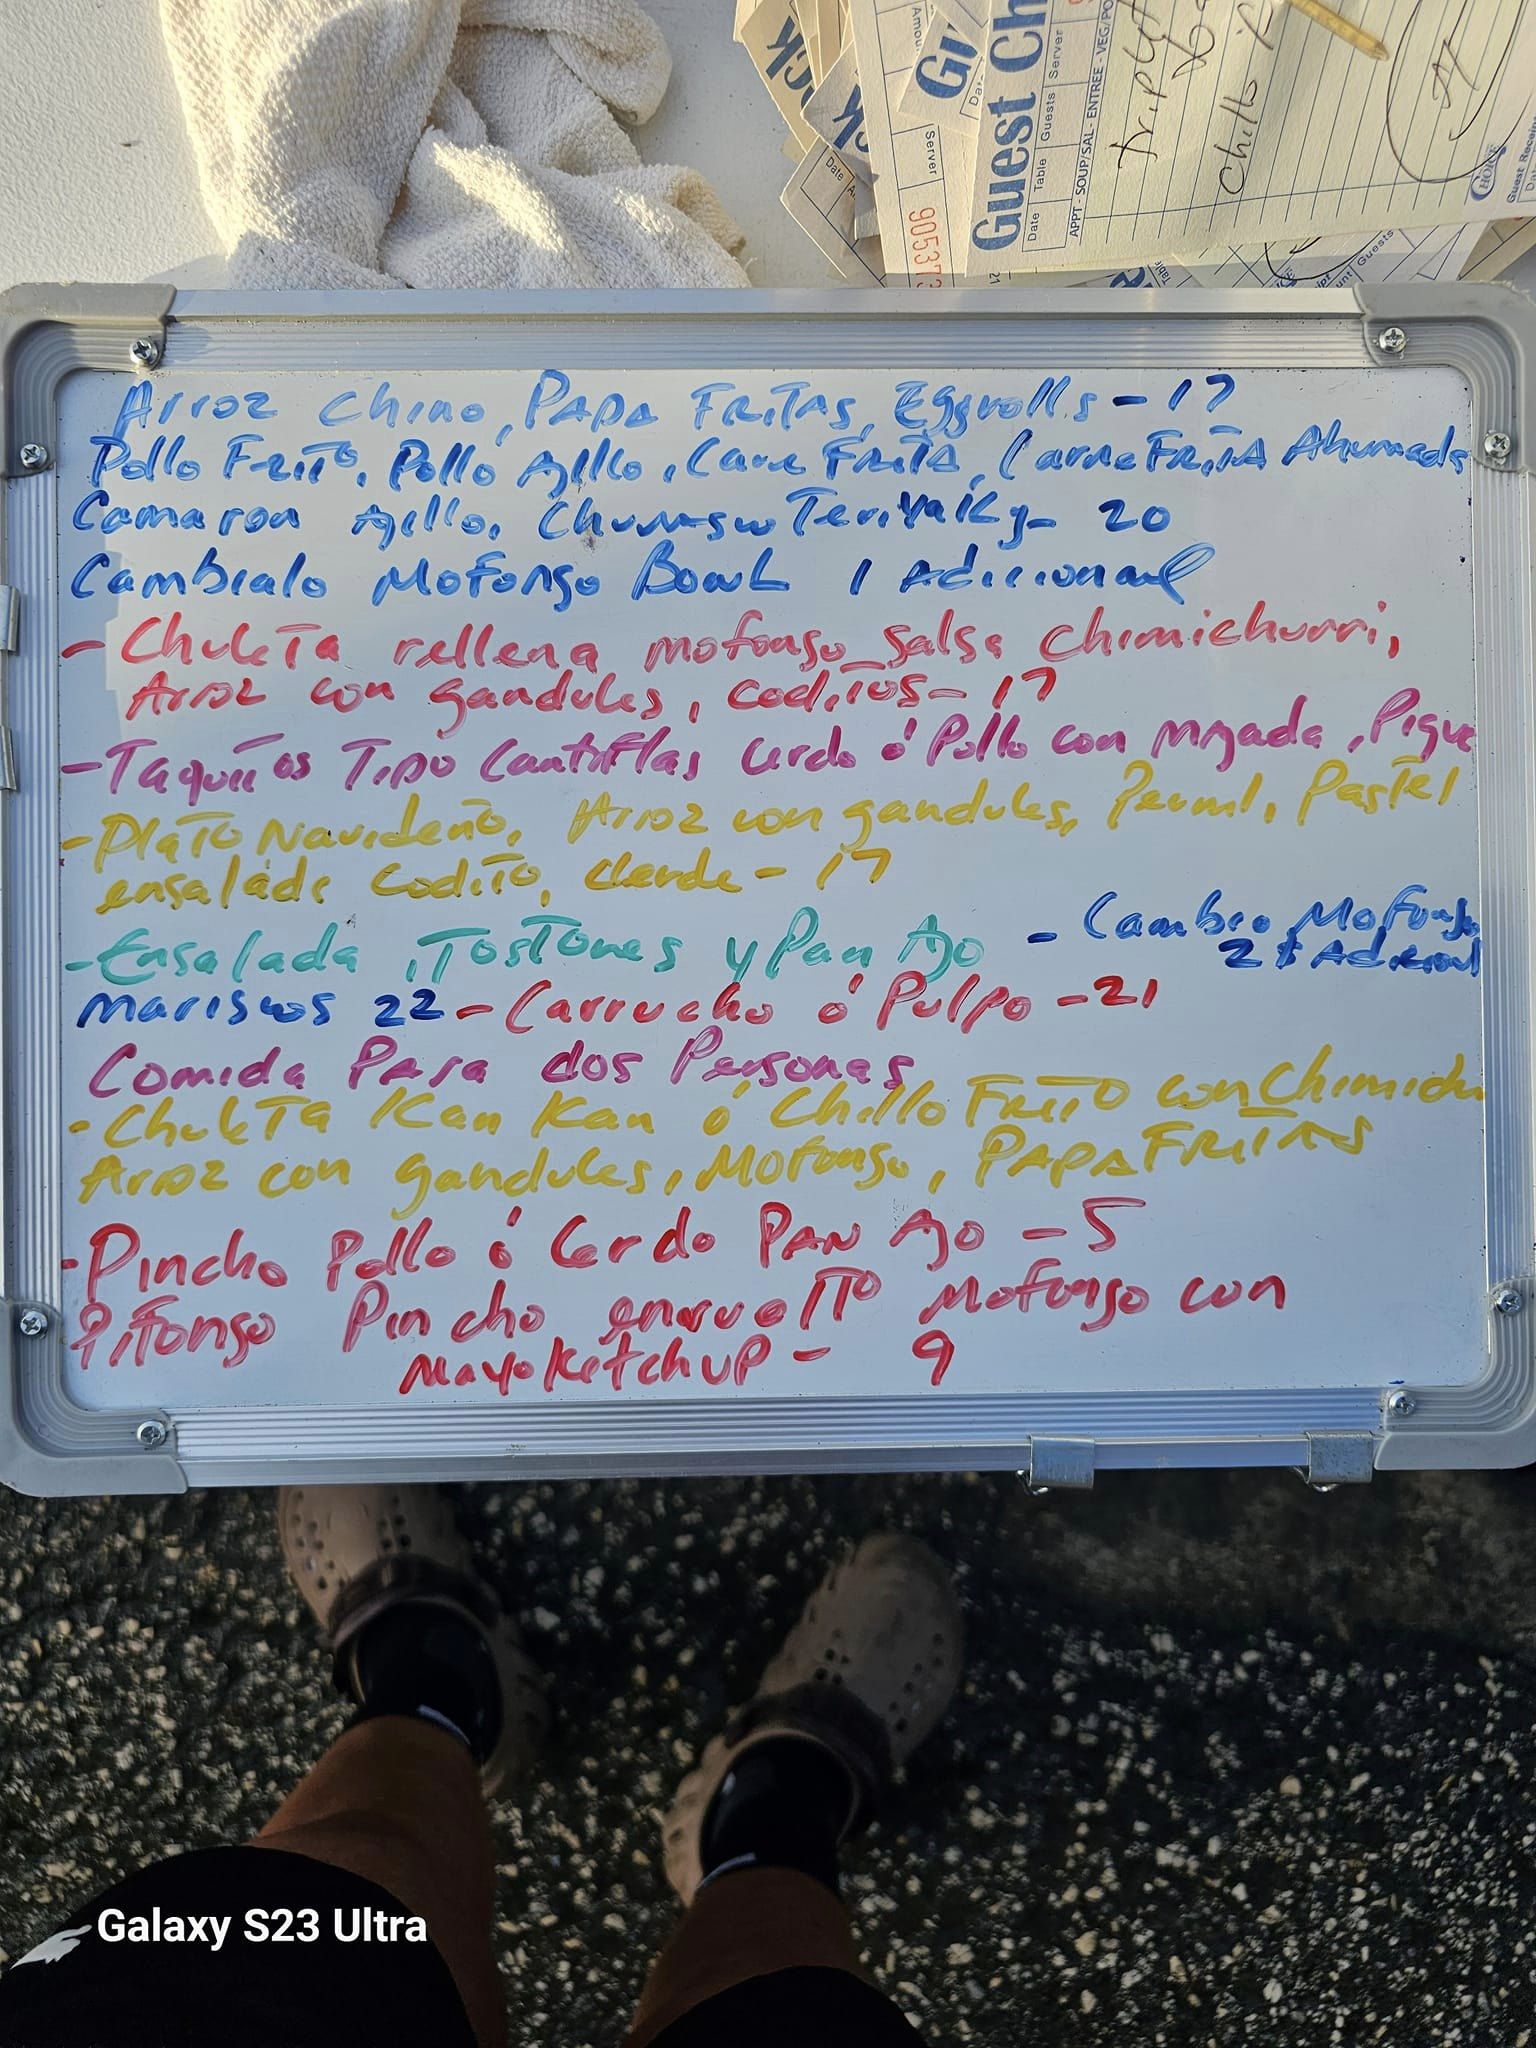 Guest Ch
Date Table Guests Server
APPT - SOUP/SAL - ENTREE - VEG/PO
Chillo
Server
905373
Arroz Chino, PAPA FRITAS, Eggrolls - 17
Pollo Frito, Pollo Ajillo, Carne Frita, Carne Frita Ahumada
Camaron Ajillo, Churrasco Teriyaky - 20
Cambialo Mofongo Bowl 1 Adicional
- Chuleta rellena mofongo salsa chimichurri,
Arroz con gandules, coditos - 17
- Taquitos Tipo Cantiflas Cerdo ó Pollo con mayada, Pique
- Plato Navideño, Arroz con gandules, Pernil, Pastel
ensalada Codito, Verde - 17
- Ensalada, Tostones y Pan Ajo - Cambio Mofongo
2$ Adicional
Mariscos 22 - Carrucho ó Pulpo - 21
Comida Para dos Personas
- Chuleta Kan Kan ó Chillo Frito con Chimichu
Arroz con gandules, Mofongo, PAPA FRITAS
- Pincho Pollo ó Cerdo PAN AJO - 5
Pifongo Pincho envuelto Mofongo con
MayoKetchup - 9
Galaxy S23 Ultra